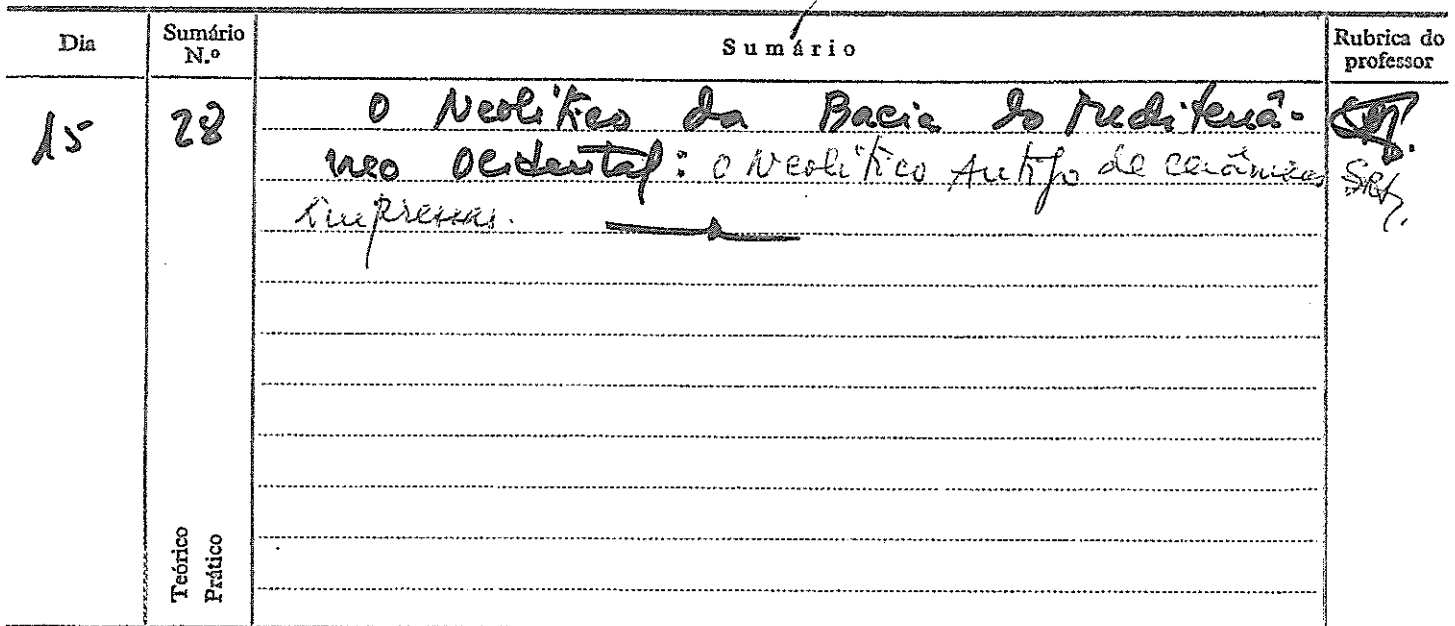 Dia Sumário N.º Sumário Rubrica do professor
15 28 O Neolítico da Bacia do Mediterrâ-
neo Ocidental: O Neolítico Antigo de cerâmicas
impressas.
Teórico
Prático